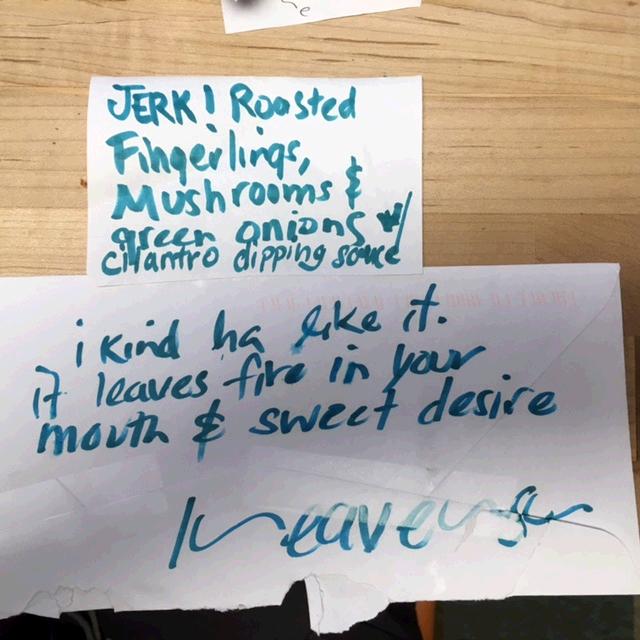 JERK! Roasted
Fingerlings,
Mushrooms &
green onions w/
cilantro dipping sauce
i kind ha like it.
it leaves fire in your
mouth & sweet desire